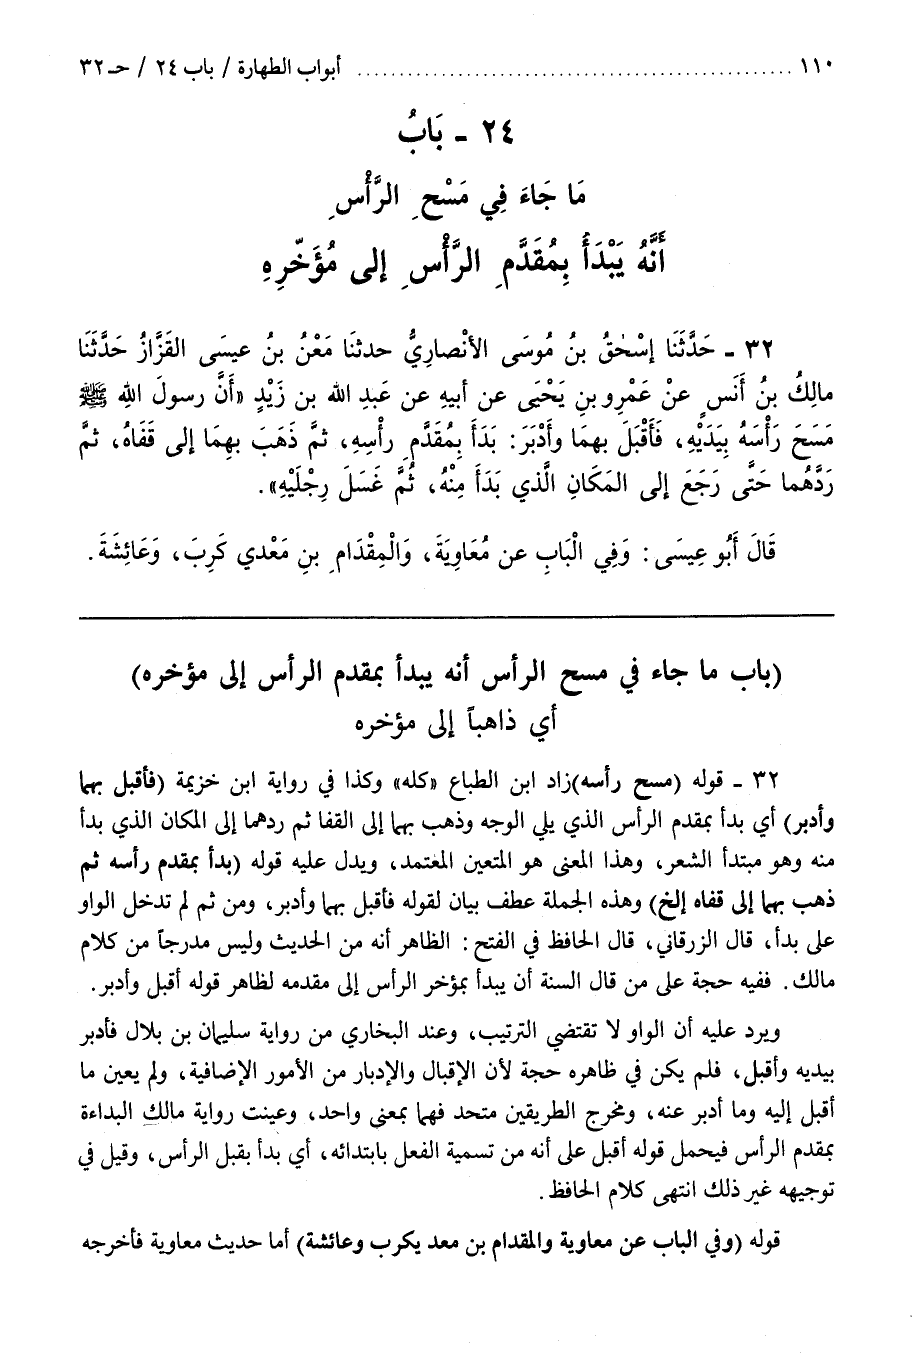 ١١٠ ............................................................ أبواب الطهارة / باب ٢٤ / حـ ٣٢
٢٤ ـ بَابُ
مَا جَاءَ فِي مَسْحِ الرَّأْسِ
أَنَّهُ يَبْدَأُ بِمُقَدَّمِ الرَّأْسِ إلى مُؤَخّرِهِ
٣٢ ـ حَدَّثَنَا إسْحٰقُ بنُ مُوسَى الأنْصارِيُّ حدثنَا مَعْنُ بنُ عيسَى القَزَّازُ حَدَّثَنَا
مالِكُ بنُ أَنَسٍ عنْ عَمْرِو بنِ يَحْيَى عن أبيهِ عن عَبدِ الله بن زَيْدٍ «أنَّ رسولَ اللهِ ﷺ
مَسَحَ رَأْسَهُ بِيَدَيْهِ، فَأقْبَلَ بهمَا وأدْبَرَ: بَدَأَ بِمُقَدَّمِ رأسِهِ، ثمَّ ذَهَبَ بهِمَا إلى قَفَاهُ، ثمَّ
رَدَّهُما حَتَّى رَجَعَ إلى المَكَانِ الَّذي بَدَأَ مِنْهُ، ثُمَّ غَسَلَ رِجْلَيْهِ».
قَالَ أَبُو عِيسَى: وَفِي الْبَابِ عن مُعَاوِيَةَ، وَالْمِقْدَامِ بنِ مَعْدي كَرِبَ، وَعَائِشَةَ.
(باب ما جاء في مسح الرأس أنه يبدأ بمقدم الرأس إلى مؤخره)
أي ذاهباً إلى مؤخره
٣٢ ـ قوله (مسح رأسه)زاد ابن الطباع «كله» وكذا في رواية ابن خزيمة (فأقبل بهما
وأدبر) أي بدأ بمقدم الرأس الذي يلي الوجه وذهب بهما إلى القفا ثم ردهما إلى المكان الذي بدأ
منه وهو مبتدأ الشعر، وهذا المعنى هو المتعين المعتمد، ويدل عليه قوله (بدأ بمقدم رأسه ثم
ذهب بهما إلى قفاه إلخ) وهذه الجملة عطف بيان لقوله فأقبل بهما وأدبر، ومن ثم لم تدخل الواو
على بدأ، قال الزرقاني، قال الحافظ في الفتح: الظاهر أنه من الحديث وليس مدرجاً من كلام
مالك. ففيه حجة على من قال السنة أن يبدأ بمؤخر الرأس إلى مقدمه لظاهر قوله أقبل وأدبر.
ويرد عليه أن الواو لا تقتضي الترتيب، وعند البخاري من رواية سليمان بن بلال فأدبر
بيديه وأقبل، فلم يكن في ظاهره حجة لأن الإقبال والإدبار من الأمور الإضافية، ولم يعين ما
أقبل إليه وما أدبر عنه، ومخرج الطريقين متحد فهما بمعنى واحد، وعينت رواية مالك البداءة
بمقدم الرأس فيحمل قوله أقبل على أنه من تسمية الفعل بابتدائه، أي بدأ بقبل الرأس، وقيل في
توجيهه غير ذلك انتهى كلام الحافظ.
قوله (وفي الباب عن معاوية والمقدام بن معد يكرب وعائشة) أما حديث معاوية فأخرجه